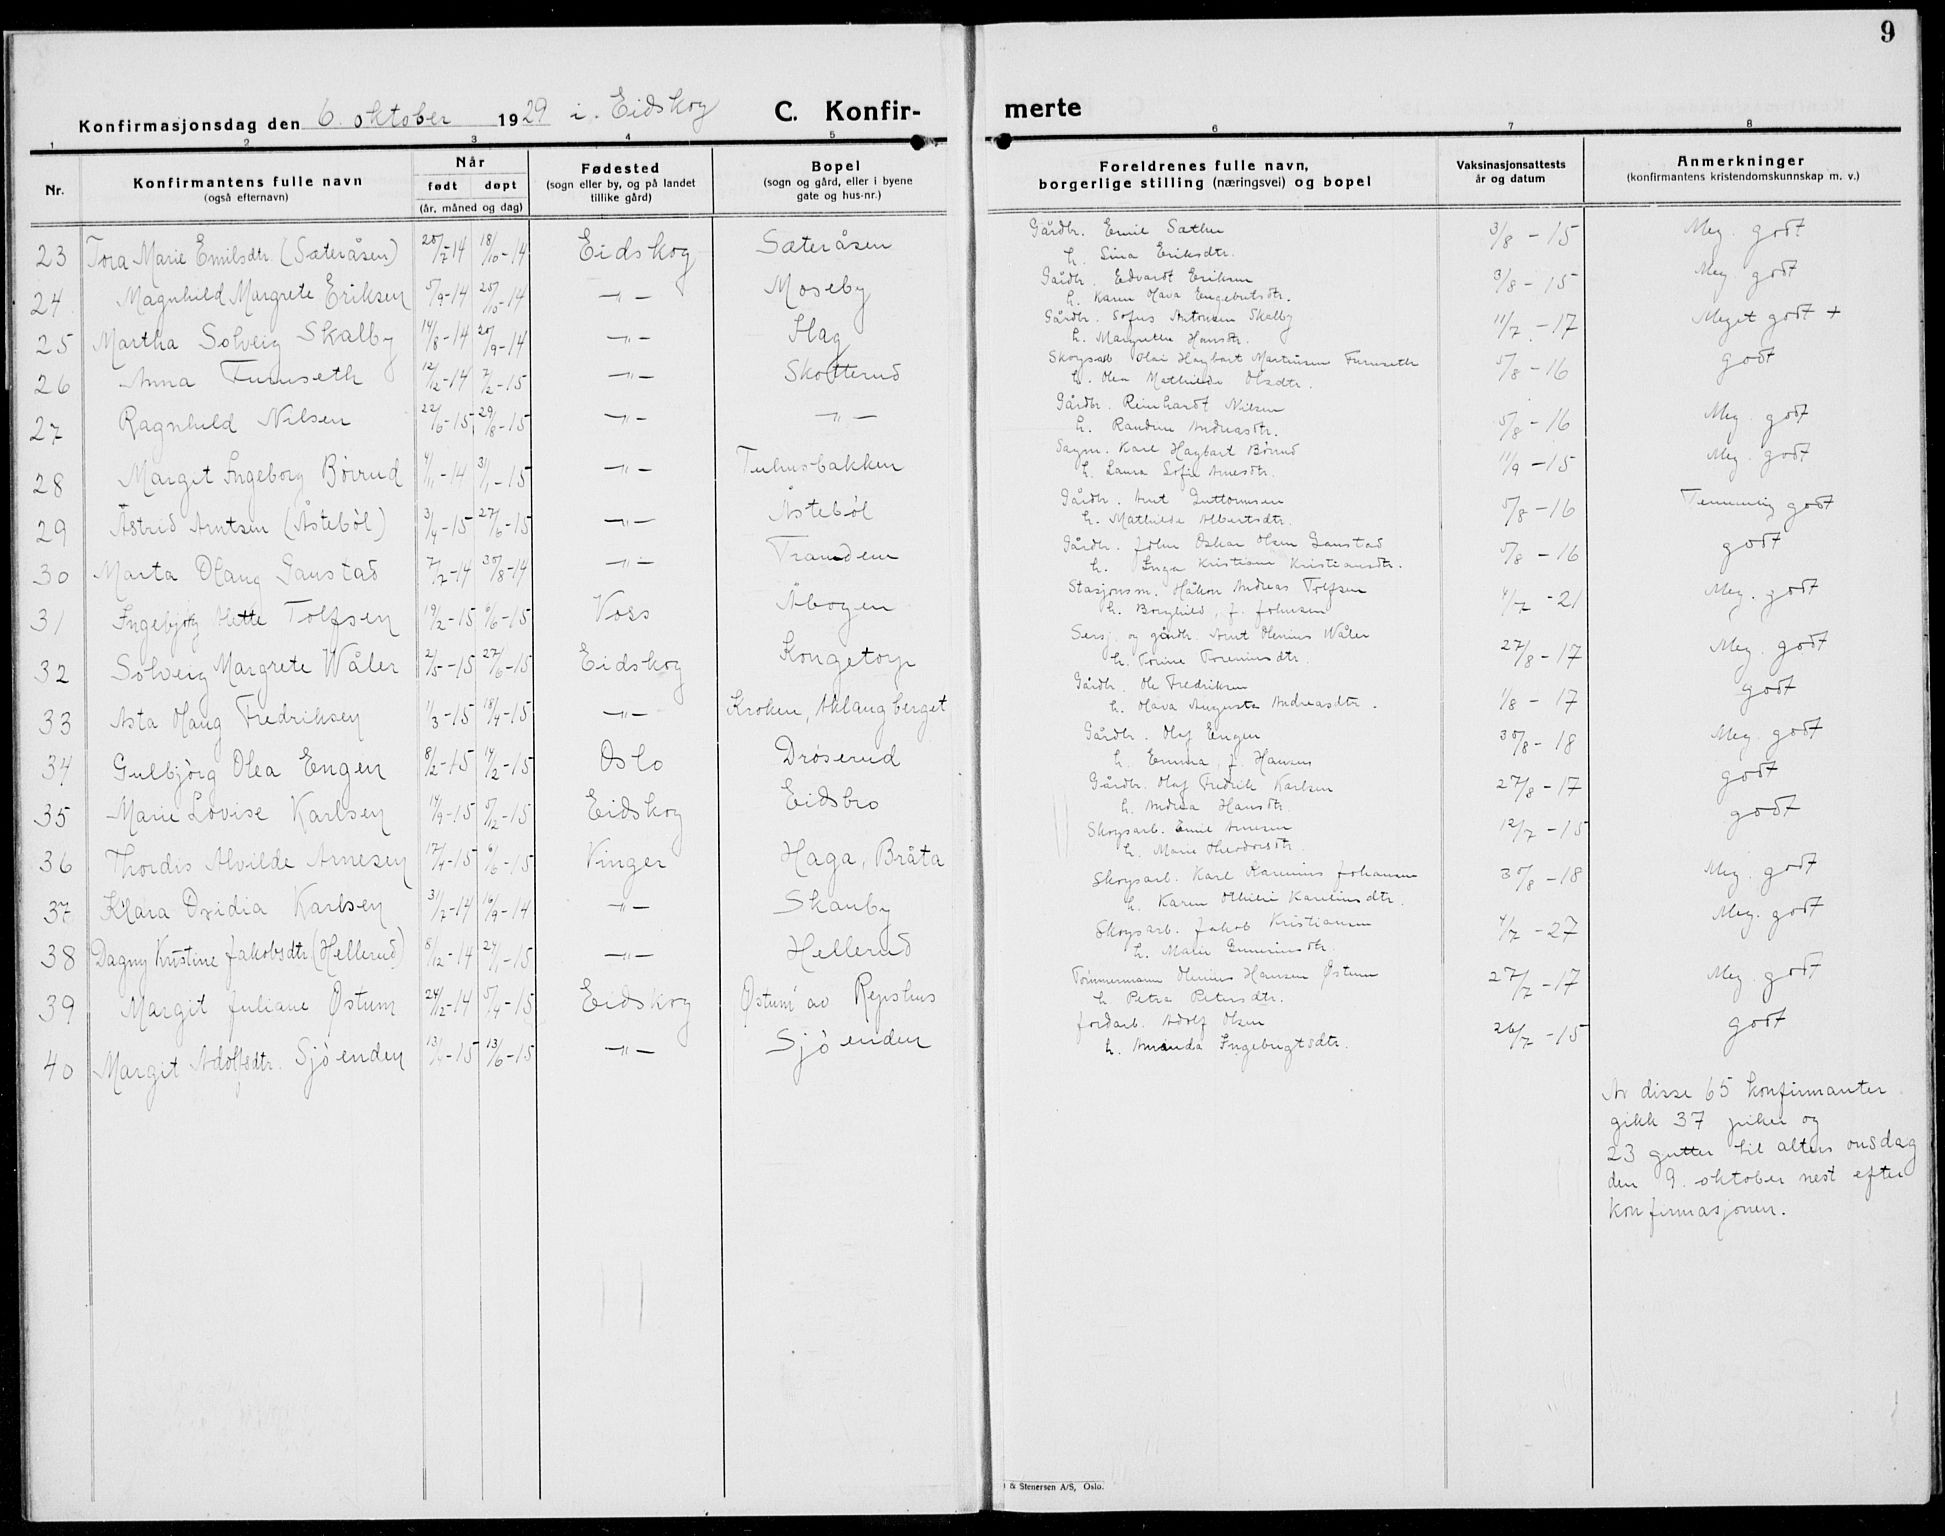 9
Konfirmasjonsdag den 6. oktober 1929 i Eidskog C. Konfirmerte
1 2 3 4 5 6 7 8
Nr.
Konfirmantens fulle navn
(også efternavn)
Når
født døpt
(år, måned og dag)
Fødested
(sogn eller by, og på landet
tillike gård)
Bopel
(sogn og gård, eller i byene
gate og hus-nr.)
Foreldrenes fulle navn,
borgerlige stilling (næringsvei) og bopel
Vaksinasjonsattests
år og datum
Anmerkninger
(konfirmantens kristendomskunnskap m. v.)
23 Tora Marie Emilsdtr. (Sæteråsen) 20/7-14 18/10-14 Eidskog Sæteråsen Gårdbr. Emil Sæther 3/8-15 Meg. godt
h. Lina Eriksdtr.
24 Magnhild Margrete Eriksen 5/9-14 25/10-14 -"- Moseby Gårdbr. Edvardt Eriksen 3/8-15 Meg. godt
h. Karen Hava Engebretsdtr.
25 Martha Solveig Skalby 14/8-14 20/9-14 -"- Hag Gårdbr. Sofus Antonsen Skalby 11/7-17 Meget godt +
h. Margrethe Hansdtr.
26 Anna Furuseth 12/12-14 7/2-15 -"- Skotterud Skogsarb. Olai Hagbart Martinsen Furuseth 5/8-16 godt
h. Olea Mathilde Olsdtr.
27 Ragnhild Nilsen 22/6-15 29/8-15 -"- -"- Gårdbr. Reinhardt Nilsen 5/8-16 Meg. godt
h. Randine Andreasdtr.
28 Margit Ingeborg Børrud 4/11-14 3/1-15 -"- Sagm. Karl Hagbart Børrud 11/9-15 Meg. godt
h. Laura Sofie Arnesdtr.
29 Astrid Arntsen (Åstebøl) 3/4-15 27/6-15 -"- Åstebøl Gårdbr. Arnt Guttormsen 5/8-16 Temmelig godt
h. Mathilde Albertsdtr.
30 Marta Olaug Ganstad 7/7-14 30/8-14 -"- Trandem Gårdbr. John Oskar Olsen Ganstad 5/8-16 godt
h. Inga Kristiane Kristiansdtr.
31 Ingebjørg Mette Tolfsen 19/2-15 6/6-15 Voss Åbogen Stasjonsm. Håkon Andreas Tolfsen 4/7-21 Meg. godt
h. Borghild, f. Johnsen
32 Solveig Margrete Wåler 2/5-15 27/6-15 Eidskog Kongetorp Sersj. og gårdbr. Arnt Olenius Wåler 27/8-17 Meg. godt
h. Torine Toreniusdtr.
33 Asta Haug Fredriksen 1/3-15 18/4-15 -"- Kroken, Aklangberget Gårdbr. Ole Fredriksen 1/8-17 godt
h. Olava Augusta Andreasdtr.
34 Gulbjørg Olea Engen 8/2-15 14/2-15 Oslo Drøserud Gårdbr. Olaf Engen 30/8-18 Meg. godt
h. Emma, f. Hansen
35 Marie Lovise Karlsen 14/9-15 5/12-15 Eidskog Eidsbro Gårdbr. Olaf Fredrik Karlsen 27/8-17 godt
h. Andrea Hansdtr.
36 Thordis Alvilde Arnesen 17/4-15 6/6-15 Vinger Haga, Bråta Skogsarb. Emil Arnesen 12/7-15 godt
h. Marie Theodorsdtr.
37 Klara Ovidia Karlsen 31/7-14 16/9-14 -"- Skanby Skogsarb. Karl Karenius Johansen 30/8-18 Meg. godt
h. Karen Othilie Kareliusdtr.
38 Dagny Kristine Jakobsdtr. (Hellerud) 8/12-14 24/1-15 -"- Hellerud Skogsarb. Jakob Kristiansen 4/7-27 Meg. godt
h. Marie Guneriusdtr.
39 Margit Juliane Østum 24/12-14 5/4-15 Eidskog Østum av Repshus Tømmermann Olenius Hansen Østum 27/7-17 Meg. godt
h. Petra Petersdtr.
40 Margit Adolfsdtr. Sjøenden 13/6-15 -"- Sjøenden Jordarb. Adolf Olsen 26/7-15 godt
h. Amanda Ingebrigtsdtr.
Av disse 65 konfirmanter
gikk 37 piker og
23 gutter til alters onsdag
den 9. oktober nest efter
konfirmasjonen.
& Stenersen A/S, Oslo.